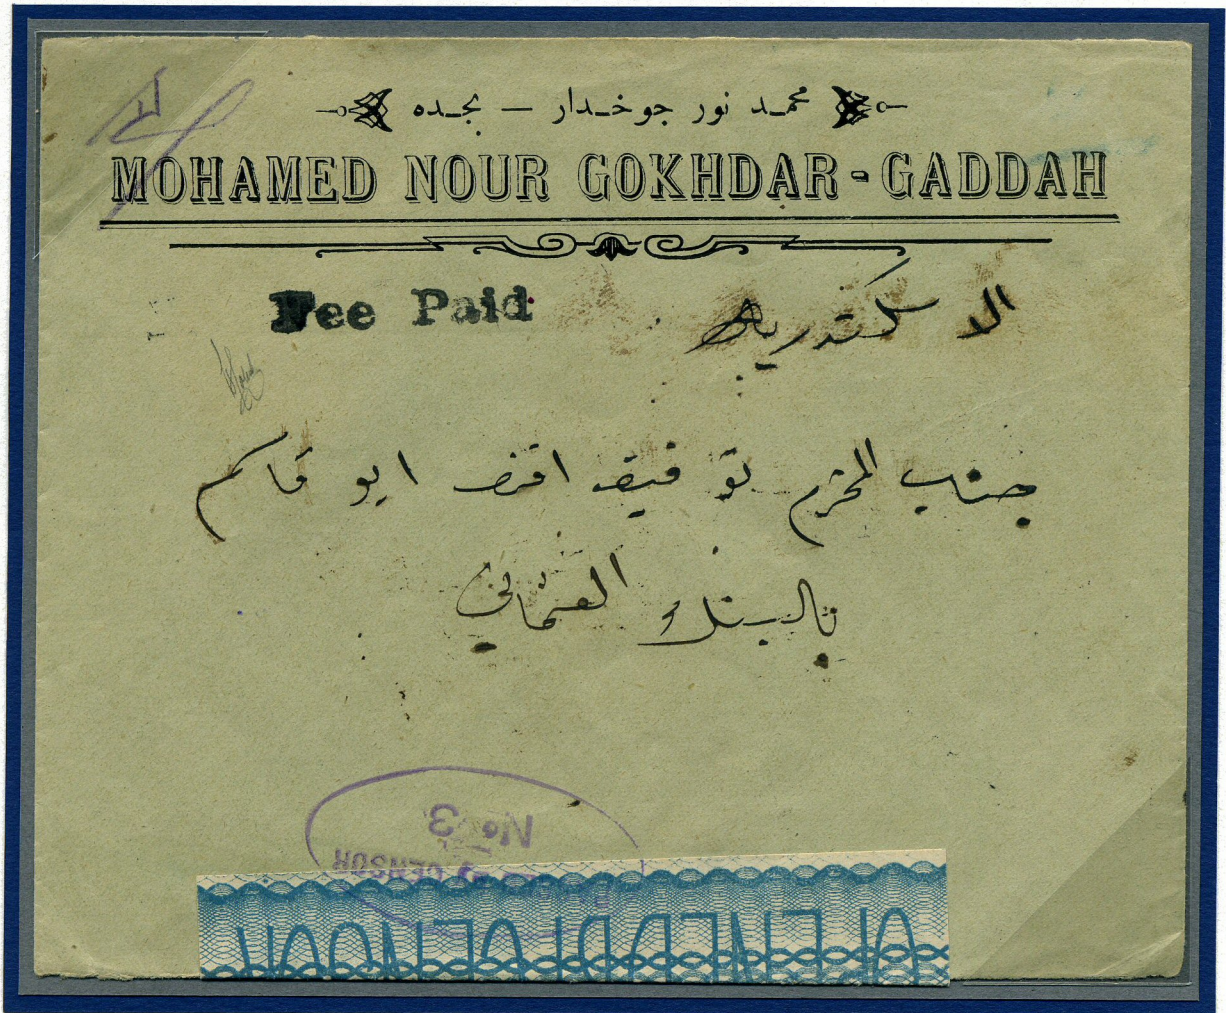 محمد نور جوخدار — بجده
MOHAMED NOUR GOKHDAR - GADDAH
Fee Paid
الاسكندريه
جناب المحترم توفيق افند ابو قاسم
بالبنك العثماني
No 3
CENSOR
OPENED BY CENSOR